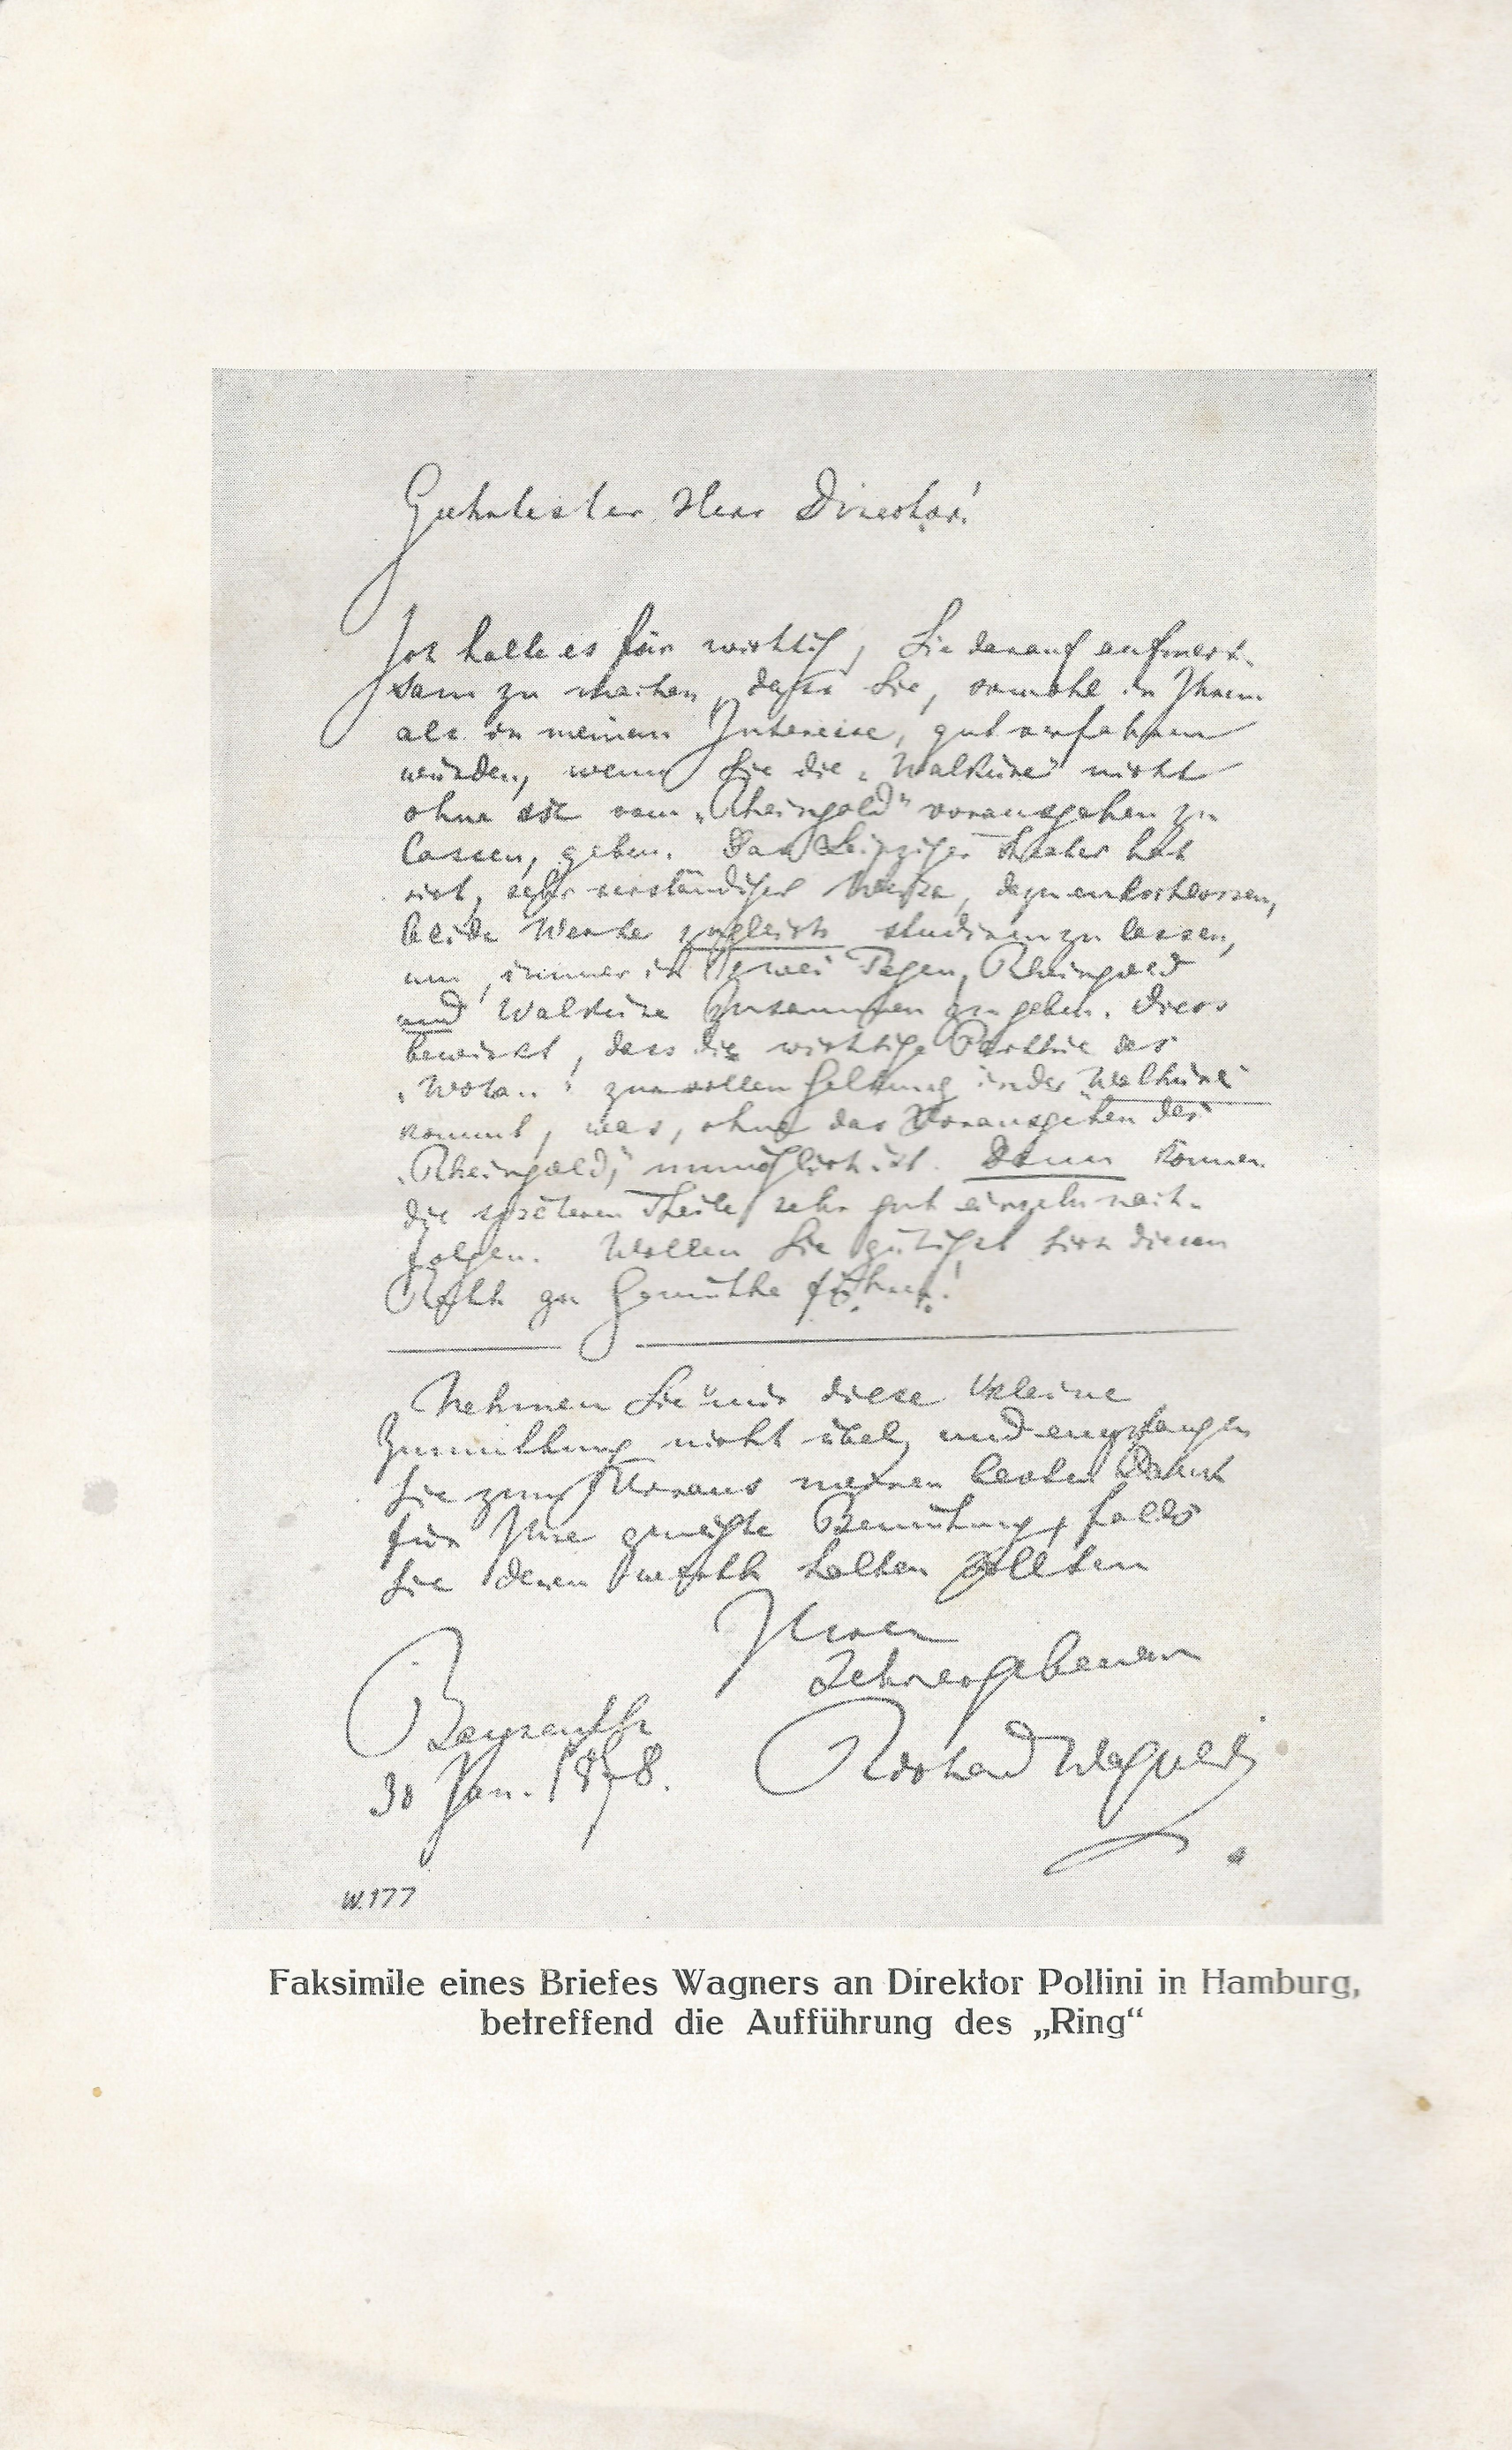 Geehrtester Herr Director!
Ich halte es für wichtig, Sie darauf aufmerk-
sam zu machen, dass Sie, sowohl in Ihrem
als in meinem Interesse, gut verfahren
würden, wenn Sie die „Walküre" nicht
ohne sie vom „Rheingold" vorausgehen zu
lassen, geben. Das Leipziger Theater hat
sich, sehr verständiger Weise, dazu entschlossen,
beide Werke zugleich studiren zu lassen,
um, immer in zwei Tagen, Rheingold
und Walküre zusammen zu geben. Diess
bewirkt, dass die wichtige Parthie des
„Wotan" zur vollen Geltung in der Walküre
kommt, was, ohne das Vorausgehen des
„Rheingold", unmöglich ist. Dann können
die späteren Theile sehr gut einzeln nach-
folgen. Wollen Sie gütigst sich diesen
Rath zu Gemüthe führen!
Nehmen Sie mir diese kleine
Zumuthung nicht übel, und empfangen
Sie zum Voraus meinen besten Dank
für Ihre geneigte Bemühung, falls
Sie deren werth halten sollten
Ihren
sehr ergebenen
Bayreuth
Richard Wagner
30 Jan. 1878.
W.177
Faksimile eines Briefes Wagners an Direktor Pollini in Hamburg,
betreffend die Aufführung des „Ring“